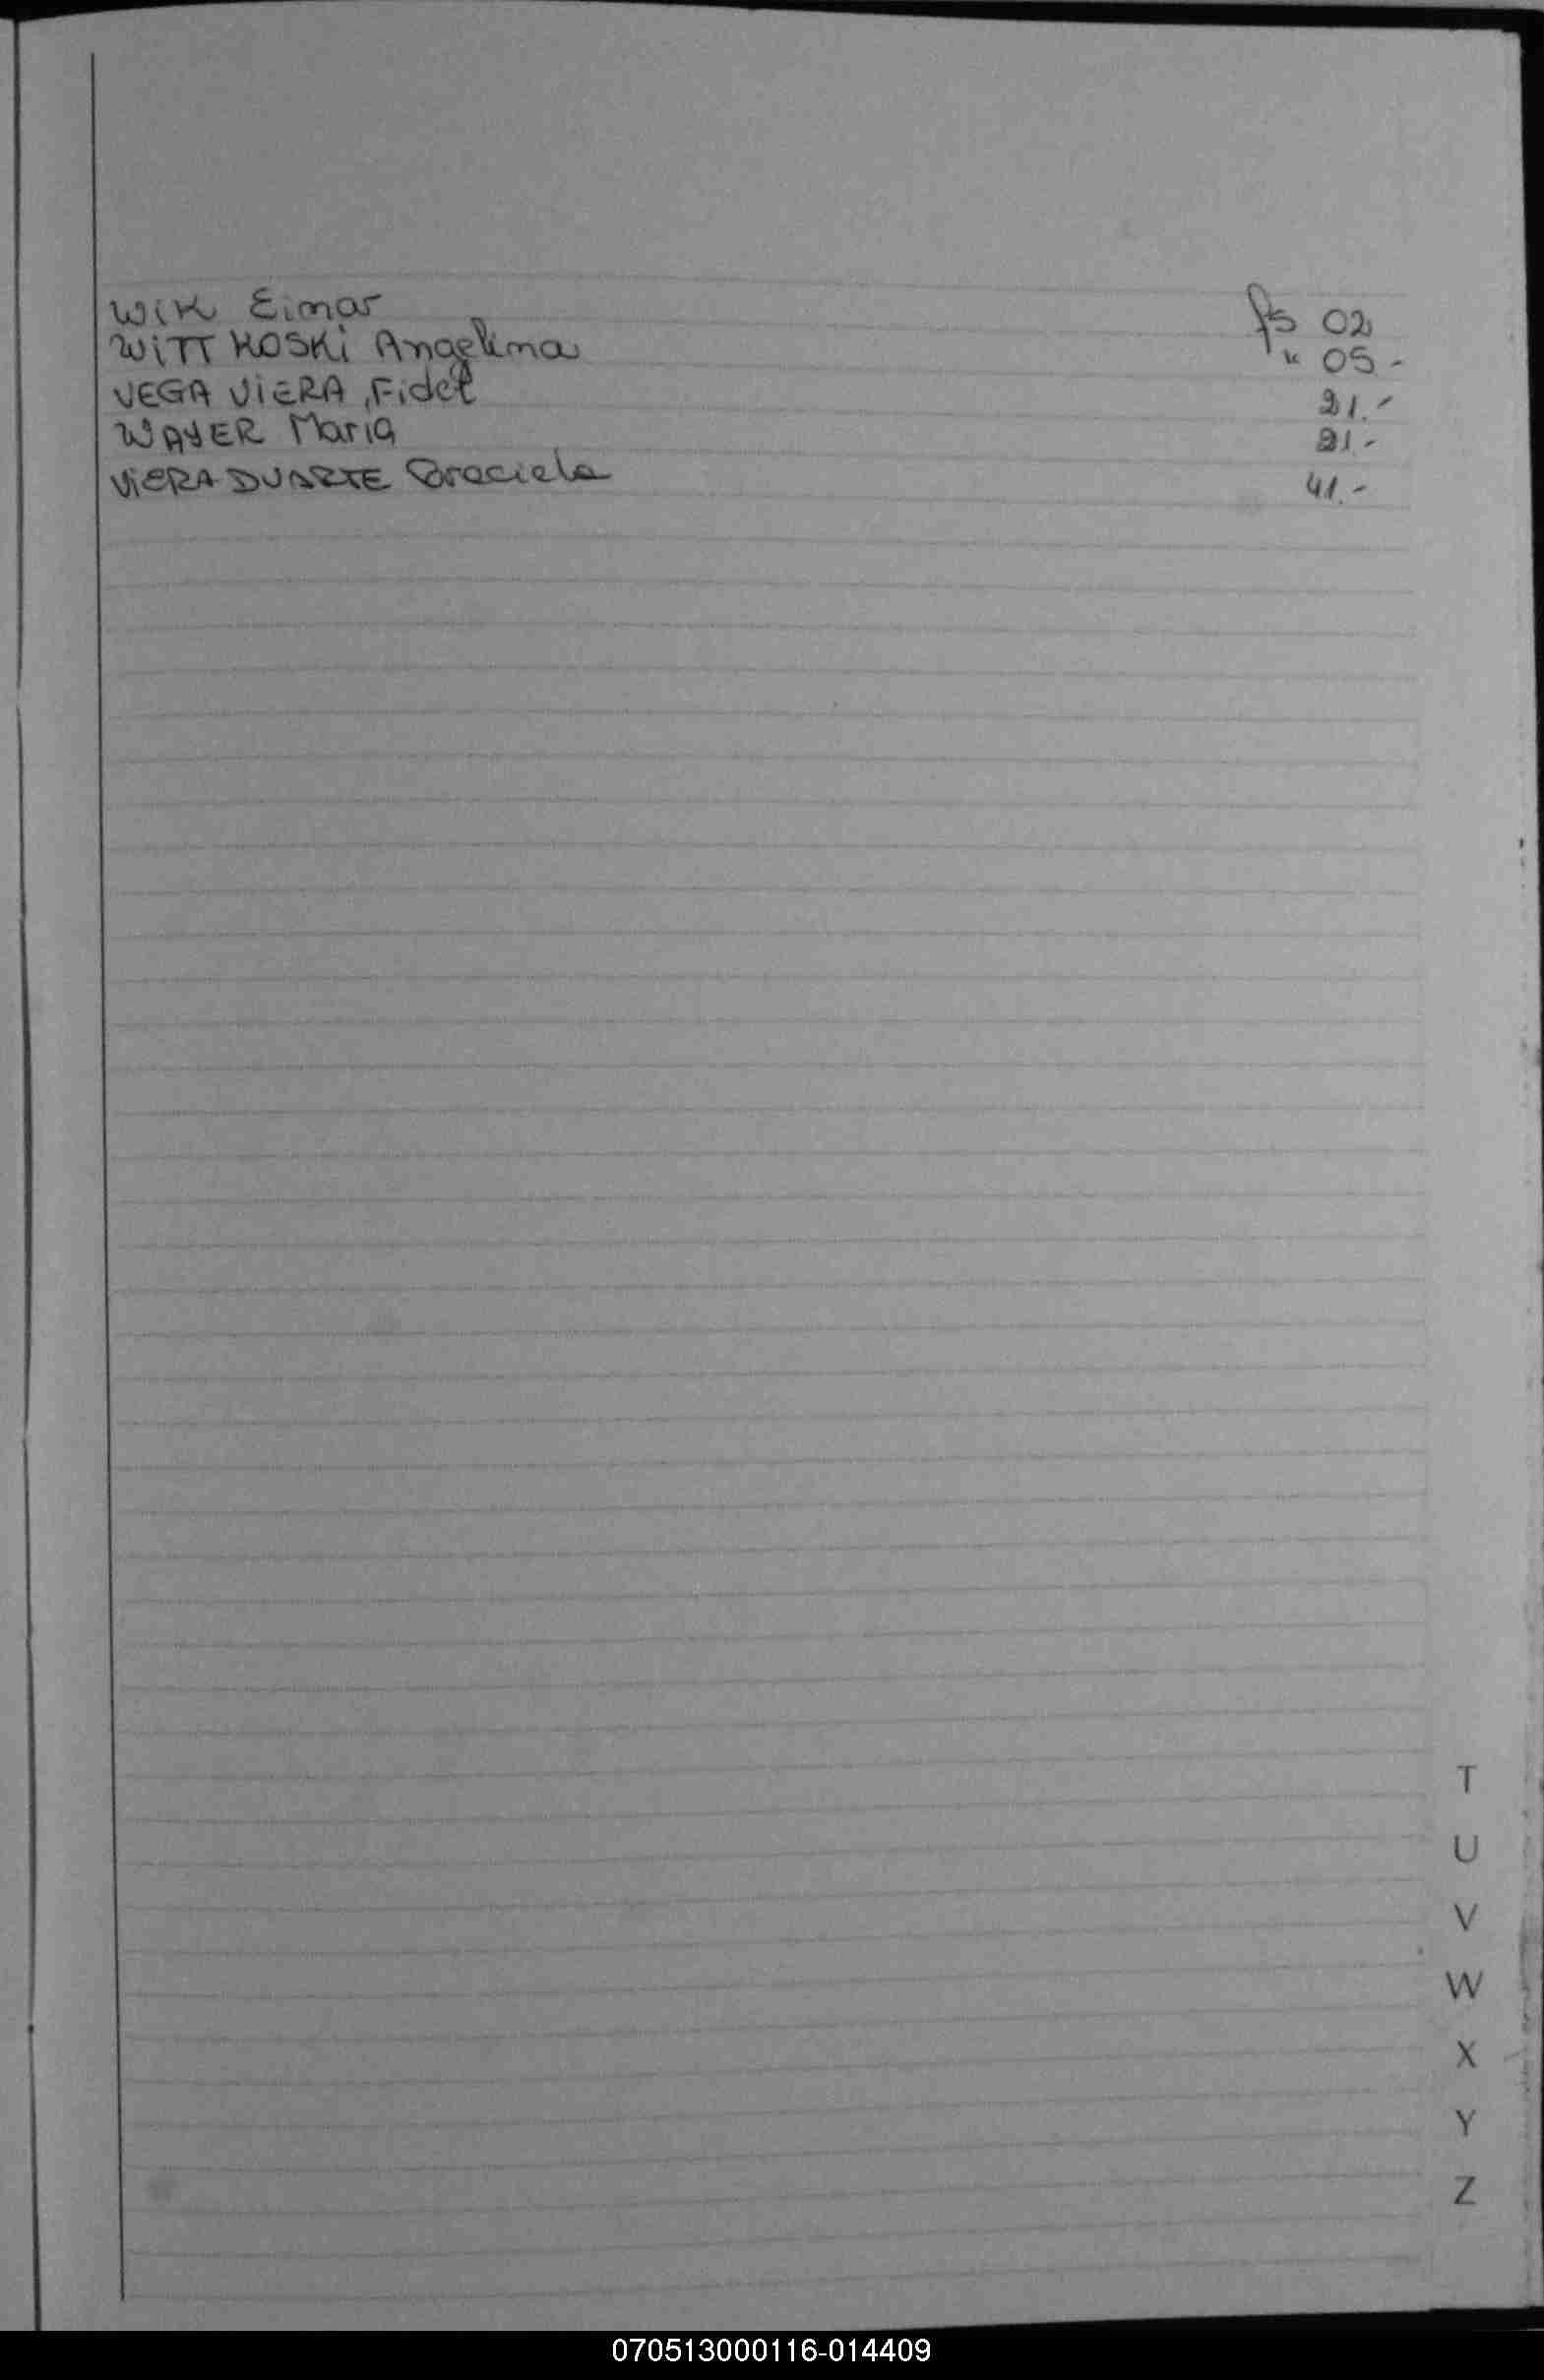 Wik Eimar fs 02
WITTKOSKI Angelina " 05-
VEGA VIERA, Fidel 21.-
WAYER Maria 21.-
VIERA DUARTE Graciela 41.-
T
U
V
W
X
Y
Z
070513000116-014409